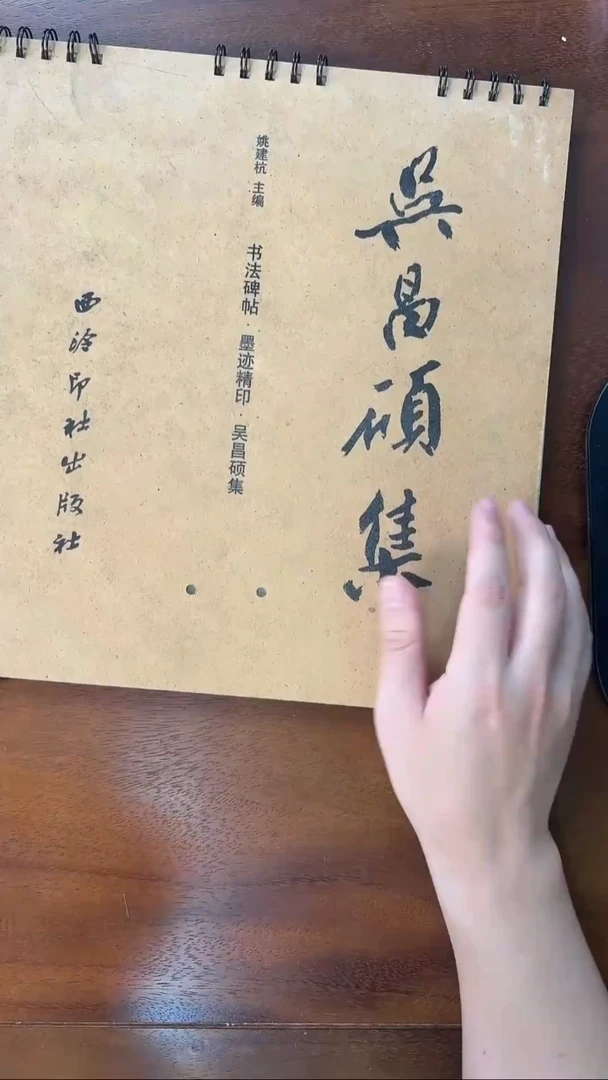 吳昌碩集
姚建杭 主编
书法碑帖·墨迹精印·吴昌硕集
西泠印社出版社